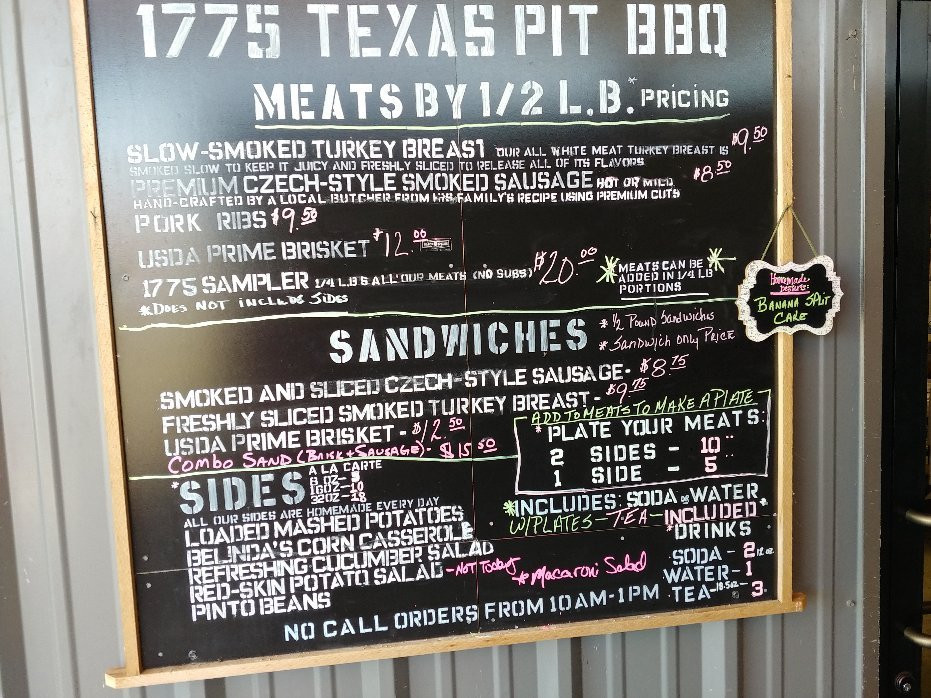 1775 TEXAS PIT BBQ
MEATS BY 1/2 L.B.* PRICING
SLOW-SMOKED TURKEY BREAST OUR ALL WHITE MEAT TURKEY BREAST IS $9.50
SMOKED SLOW TO KEEP IT JUICY AND FRESHLY SLICED TO RELEASE ALL OF ITS FLAVORS
PREMIUM CZECH-STYLE SMOKED SAUSAGE HOT OR MILD $8.50
HAND-CRAFTED BY A LOCAL BUTCHER FROM HIS FAMILY'S RECIPE USING PREMIUM CUTS
PORK RIBS $9.50
USDA PRIME BRISKET $12.00
1775 SAMPLER 1/4 LB'S ALL OUR MEATS (NO SUBS) $20.00
*DOES NOT INCLUDE SIDES
*MEATS CAN BE*
ADDED IN 1/4 LB
PORTIONS
Homemade
Desserts:
BANANA SPLIT
CAKE
SANDWICHES
* 1/2 Pound Sandwiches
* Sandwich only Price
SMOKED AND SLICED CZECH-STYLE SAUSAGE- $8.75
FRESHLY SLICED SMOKED TURKEY BREAST- $9.75
USDA PRIME BRISKET - $12.50
COMBO SAND (BRISK + SAUSAGE)- $15.50
ADD TO MEATS TO MAKE A PLATE
*PLATE YOUR MEATS:
2 SIDES - 10
1 SIDE - 5
*INCLUDES: SODA or WATER
W/PLATES - TEA - INCLUDED
*SIDES
A LA CARTE
8 OZ-5
16OZ-10
32OZ-18
ALL OUR SIDES ARE HOMEMADE EVERY DAY
LOADED MASHED POTATOES
BELINDA'S CORN CASSEROLE
REFRESHING CUCUMBER SALAD
RED-SKIN POTATO SALAD - NOT Today * Macaroni Salad
PINTO BEANS
*DRINKS
SODA - 2 12 oz
WATER- 1
TEA- 18.5oz - 3.
NO CALL ORDERS FROM 10AM-1PM